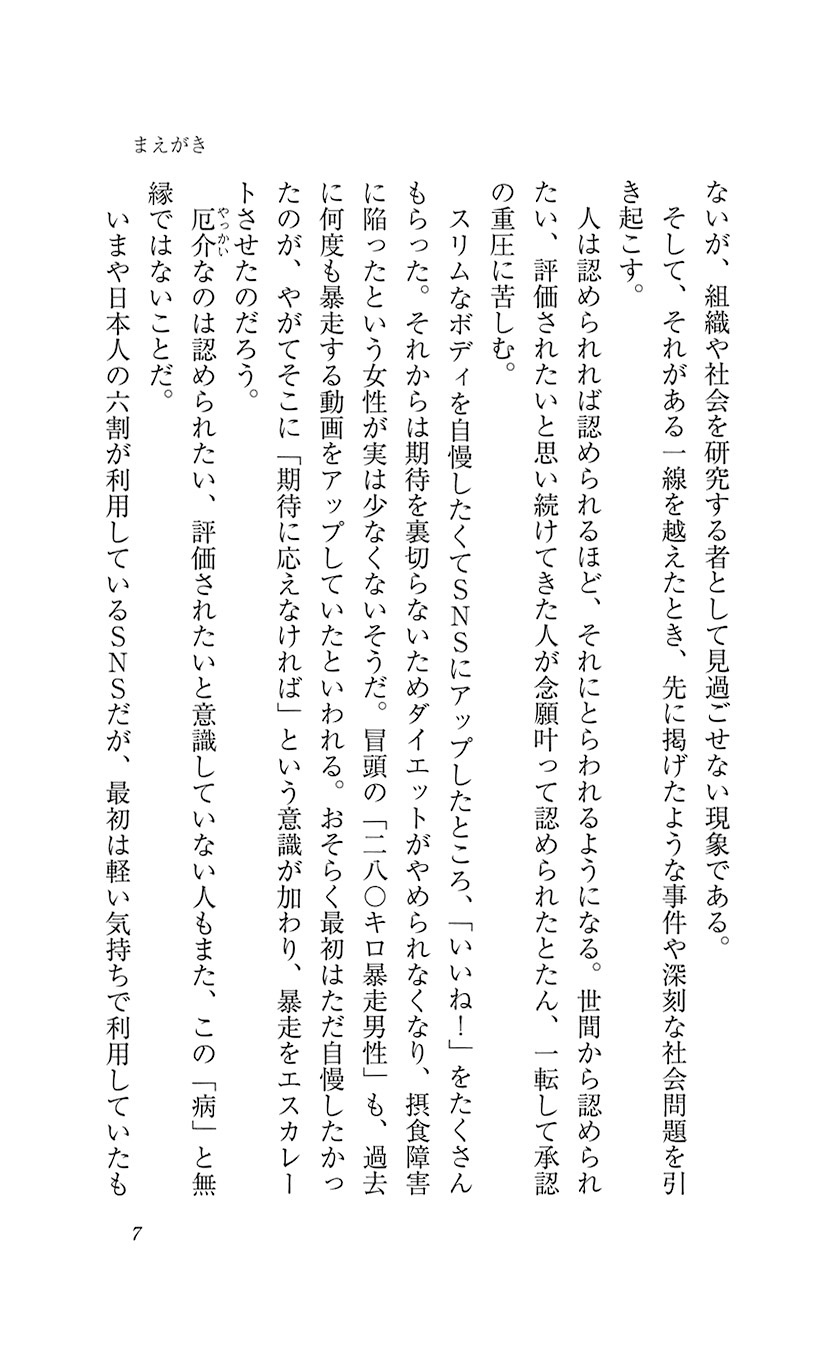 まえがき
ないが、組織や社会を研究する者として見過ごせない現象である。
そして、それがある一線を越えたとき、先に掲げたような事件や深刻な社会問題を引
き起こす。
人は認められれば認められるほど、それにとらわれるようになる。世間から認められ
たい、評価されたいと思い続けてきた人が念願叶って認められたとたん、一転して承認
の重圧に苦しむ。
スリムなボディを自慢したくてSNSにアップしたところ、「いいね！」をたくさん
もらった。それからは期待を裏切らないためダイエットがやめられなくなり、摂食障害
に陥ったという女性が実は少なくないそうだ。冒頭の「二八〇キロ暴走男性」も、過去
に何度も暴走する動画をアップしていたといわれる。おそらく最初はただ自慢したかっ
たのが、やがてそこに「期待に応えなければ」という意識が加わり、暴走をエスカレー
トさせたのだろう。
やっかい
厄介なのは認められたい、評価されたいと意識していない人もまた、この「病」と無
縁ではないことだ。
いまや日本人の六割が利用しているSNSだが、最初は軽い気持ちで利用していたも
7